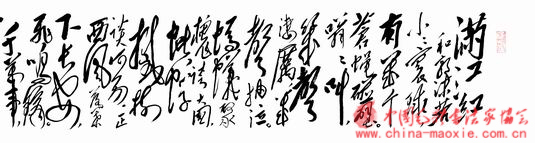 滿江红
和郭沫若
小小寰球
有几个
苍蝇碰壁。
嗡嗡叫
几聲
凄厉几
聲抽泣。
蚂蟻缘
槐夸大国
蚍蜉
撼树
谈何易。正
西风落葉
下长安,
飞鸣镝。
千万事,
中国毛体书法家协会
www.china-maoxie.com.cn